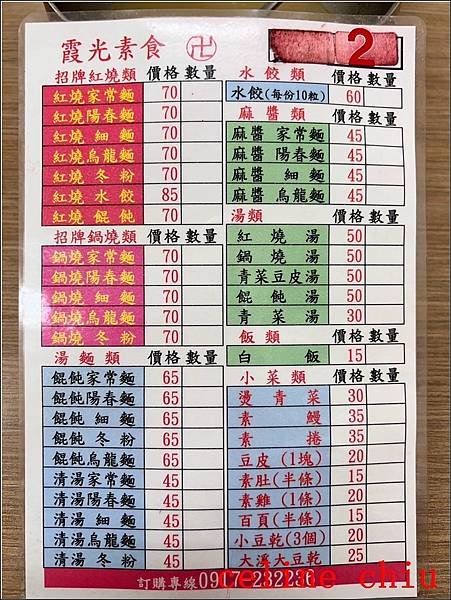 霞光素食 卍
2
招牌紅燒類 價格 數量
紅燒家常麵 70
紅燒陽春麵 70
紅燒 細 麵 70
紅燒烏龍麵 70
紅燒 冬 粉 70
紅燒 水 餃 85
紅燒 餛 飩 70
招牌鍋燒類 價格 數量
鍋燒家常麵 70
鍋燒陽春麵 70
鍋燒 細 麵 70
鍋燒烏龍麵 70
鍋燒 冬 粉 70
湯 麵 類 價格 數量
餛飩家常麵 65
餛飩陽春麵 65
餛飩 細 麵 65
餛飩 冬 粉 65
餛飩烏龍麵 65
清湯家常麵 45
清湯陽春麵 45
清湯 細 麵 45
清湯烏龍麵 45
清湯 冬 粉 45
水 餃 類 價格 數量
水餃(每份10粒) 60
麻 醬 類 價格 數量
麻醬 家常麵 45
麻醬 陽春麵 45
麻醬 細 麵 45
麻醬 烏龍麵 45
湯類 價格 數量
紅 燒 湯 50
鍋 燒 湯 50
青菜豆皮湯 50
餛 飩 湯 50
青 菜 湯 30
飯 類 價格 數量
白 飯 15
小 菜 類 價格 數量
燙 青 菜 30
素 鰻 35
素 捲 35
豆皮 (1塊) 20
素肚(半條) 15
素雞 (1條) 20
百頁(半條) 15
小豆乾(3個) 20
大溪大豆乾 25
訂購專線
celine chiu